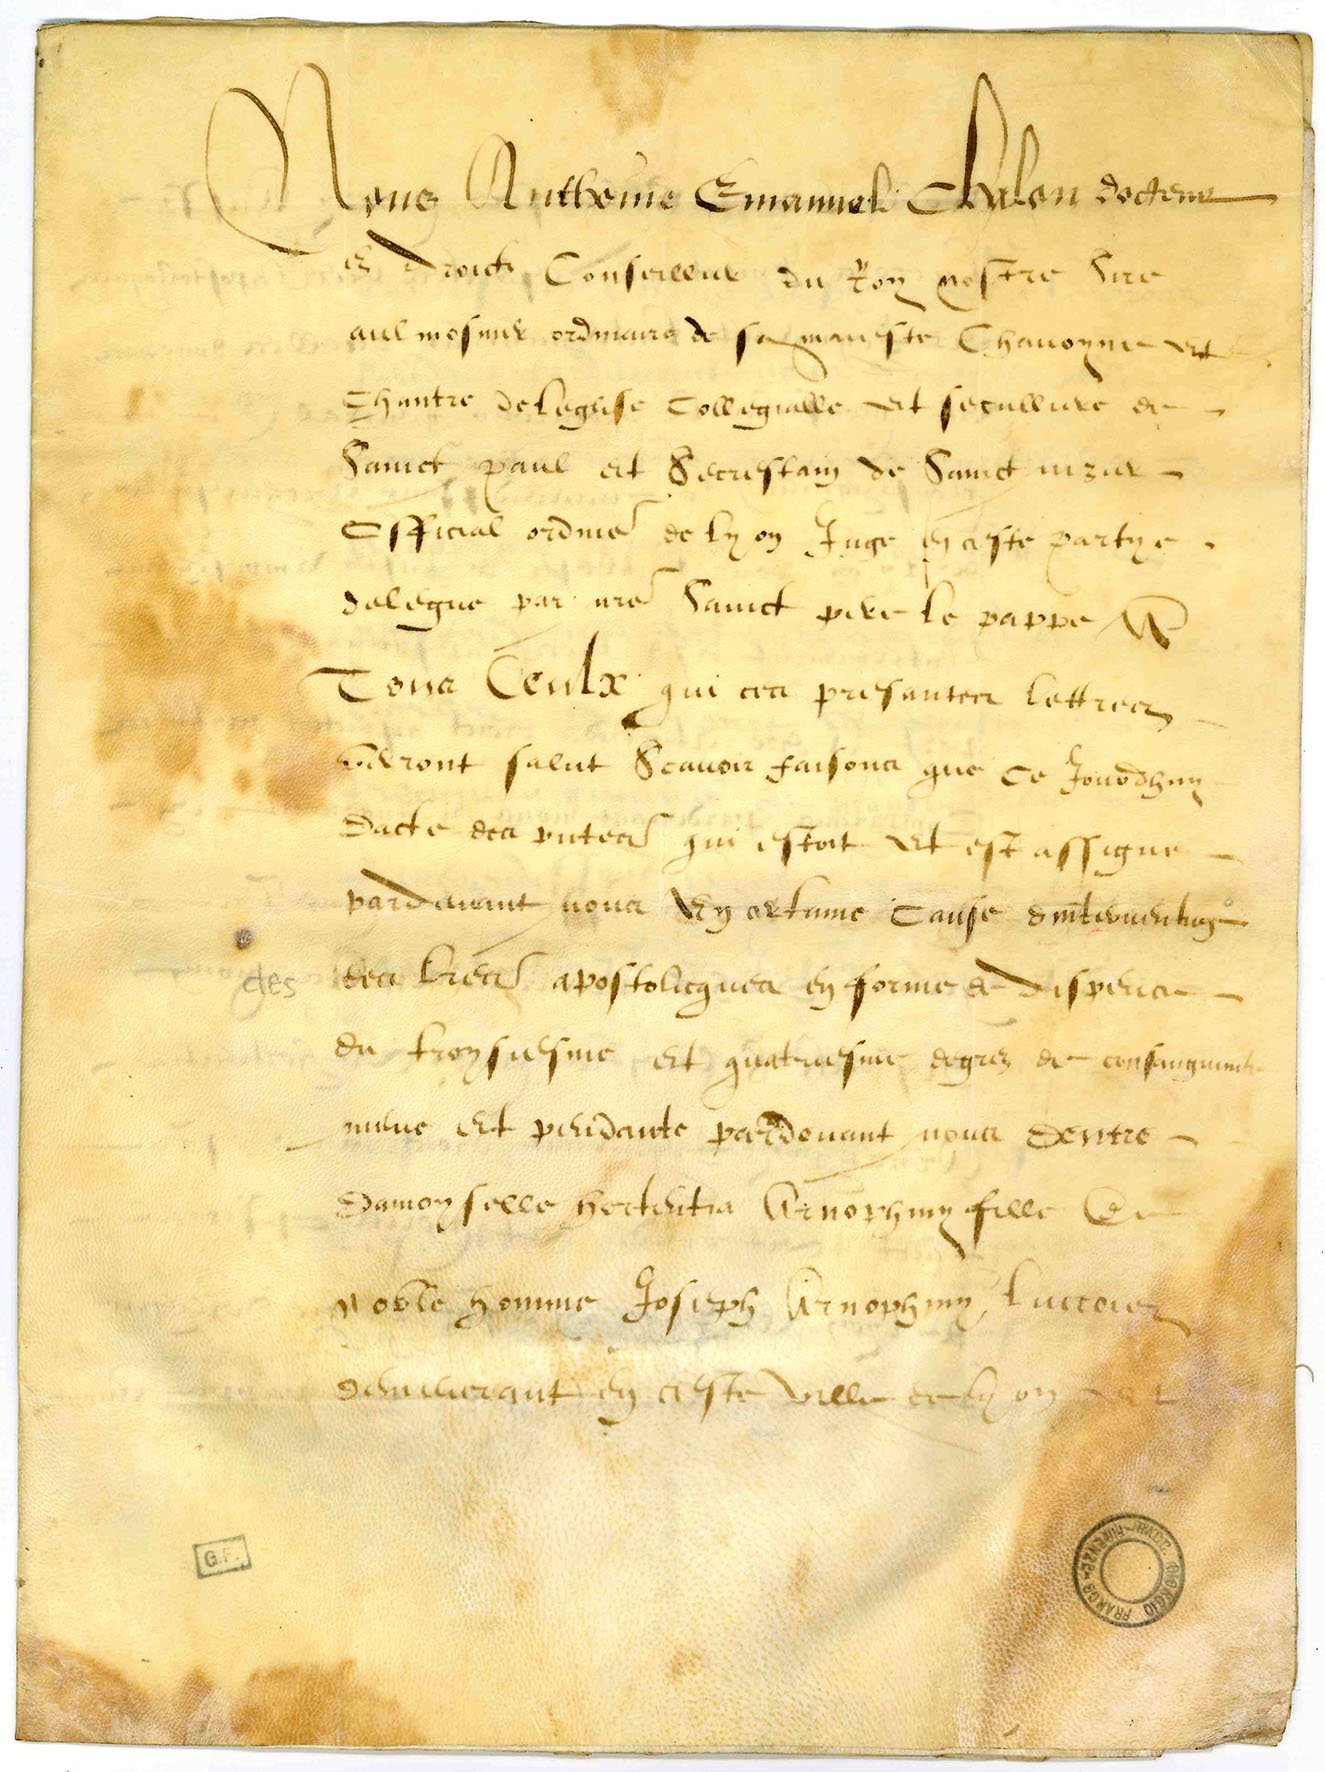 Nous Antheine Emanuel Chalon docteur
es droictz Conseilleur du Roy nostre sire
aulmosnier ordinaire de sa maieste Chanoyne et
Chantre de leglise Collegialle et seculliere de
Sainct paul et Secrestain de Sainct nizier
Official ordinere de lyon Juge en ceste partye
delegue par nre Sainct pere le pappe A
Tous Ceulx qui ces presantes lettres
verront salut Scavoir faisons que ce Jourdhuy
dacte des pntes qui estoit et est assigne
pardevant nous En certaine Cause
des lres apostolicques en forme de dispence
du troysiesme et quatriesme degrez de consanguinite
meue et pendante pardevant nous dentre
des
damoyselle hortentia Arnophiny fille de
Noble homme Joseph Arnophiny lucois
demeurant en ceste ville de lyon et
G.F.
GIORGIO FRANGO FIRENZE